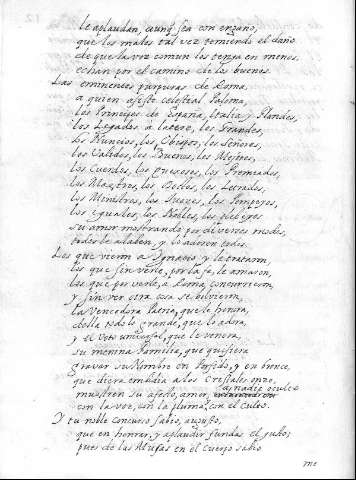 le aplaudan, aunq̃ sea con engaño,
que los malos tal vez temiendo el daño
de que la voz comun los tenga en menos,
echan por el camino de los buenos.
Las eminentes purpuras de Roma,
a quien asiste celestial Paloma,
los Principes de España, Italia, y Flandes,
los Legados a latere, los Grandes,
los Nuncios, los Obispos, los Señores,
los Validos, los Buenos, los Mejores,
los Cuerdos, los Curiosos, los Premiados,
los Maestros, los Doctos, los Letrados,
los Ministros, los Juezes, los
los Yguales, los Nobles, los Plebeyos
su amor mostrando por diversos modos,
todos le alaben, y lo adoren todos.
Los que vieron a Ygnacio y le trataron,
los que sin verle, por la fe, le amaron,
los que por verle, a Roma concurrieron,
y sin ver otra cosa se bolvieron,
la Vencedora Patria, que le honra,
ella todo lo grande, que lo adora,
y el Voto universal, que le venera,
su menina Familia, que quisiera
gravar su Nombre en Porfido, y en bronce,
que diera embidia a los Celestiales onze,
muestren su afecto, amor,
con la voz, con la pluma, con el Culto.
Y tu noble concurso sabio, augusto,
que en honrar, y aplaudir fundas el gusto;
pues de las Musas en el cuerpo sabio
me